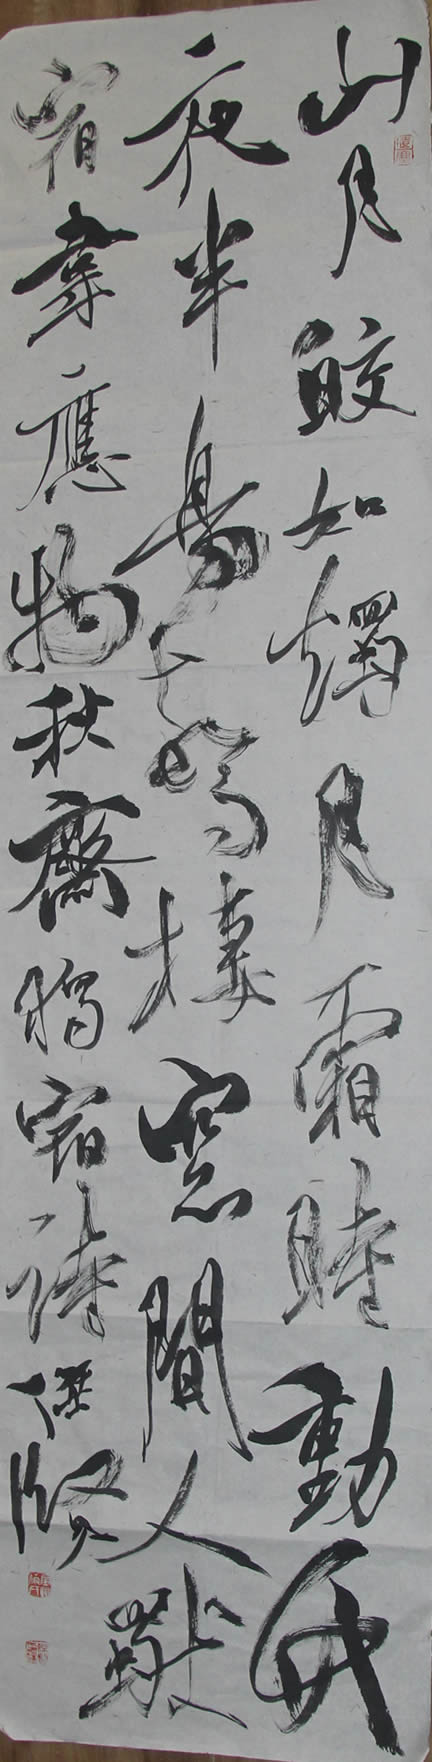 山月皎如燭月霜時動竹
夜半鳥驚棲窓間人獨
宿韋應物秋齋獨宿詩傑賢